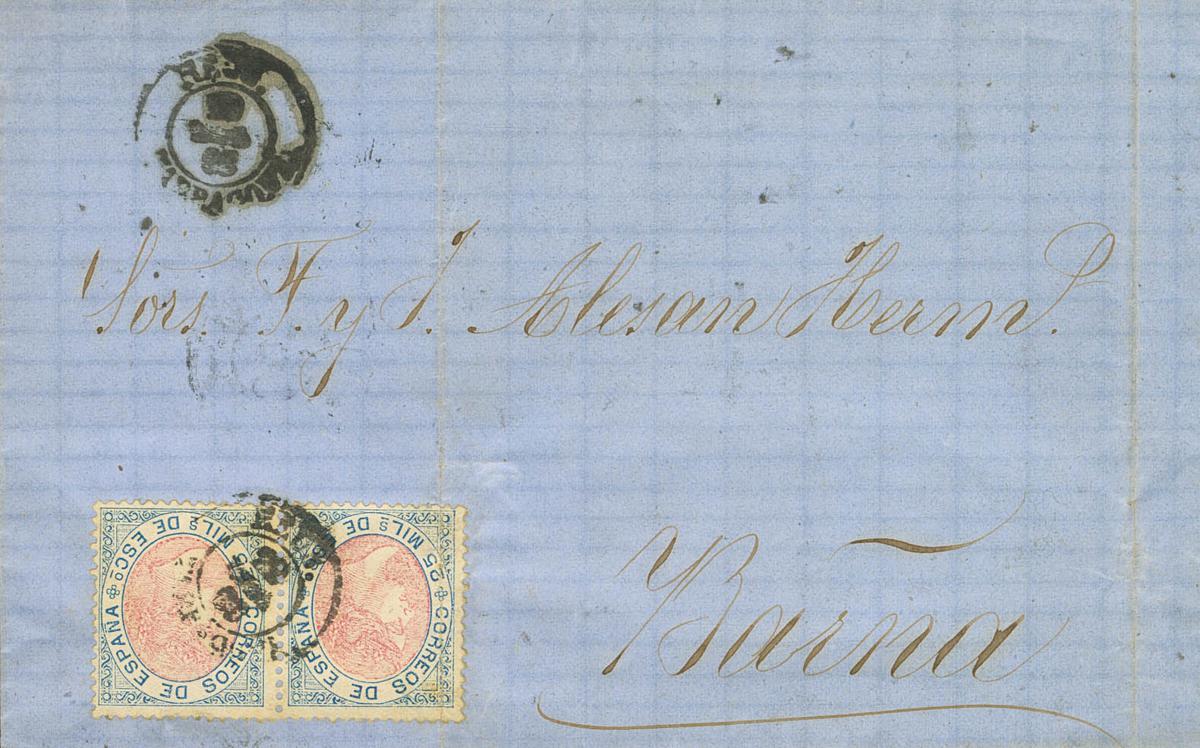 Sors. F. y J. Alesan Herms.
Barña
25 MILs DE ESCo
CORREOS DE ESPAÑA
25 MILs DE ESCo
CORREOS DE ESPAÑA